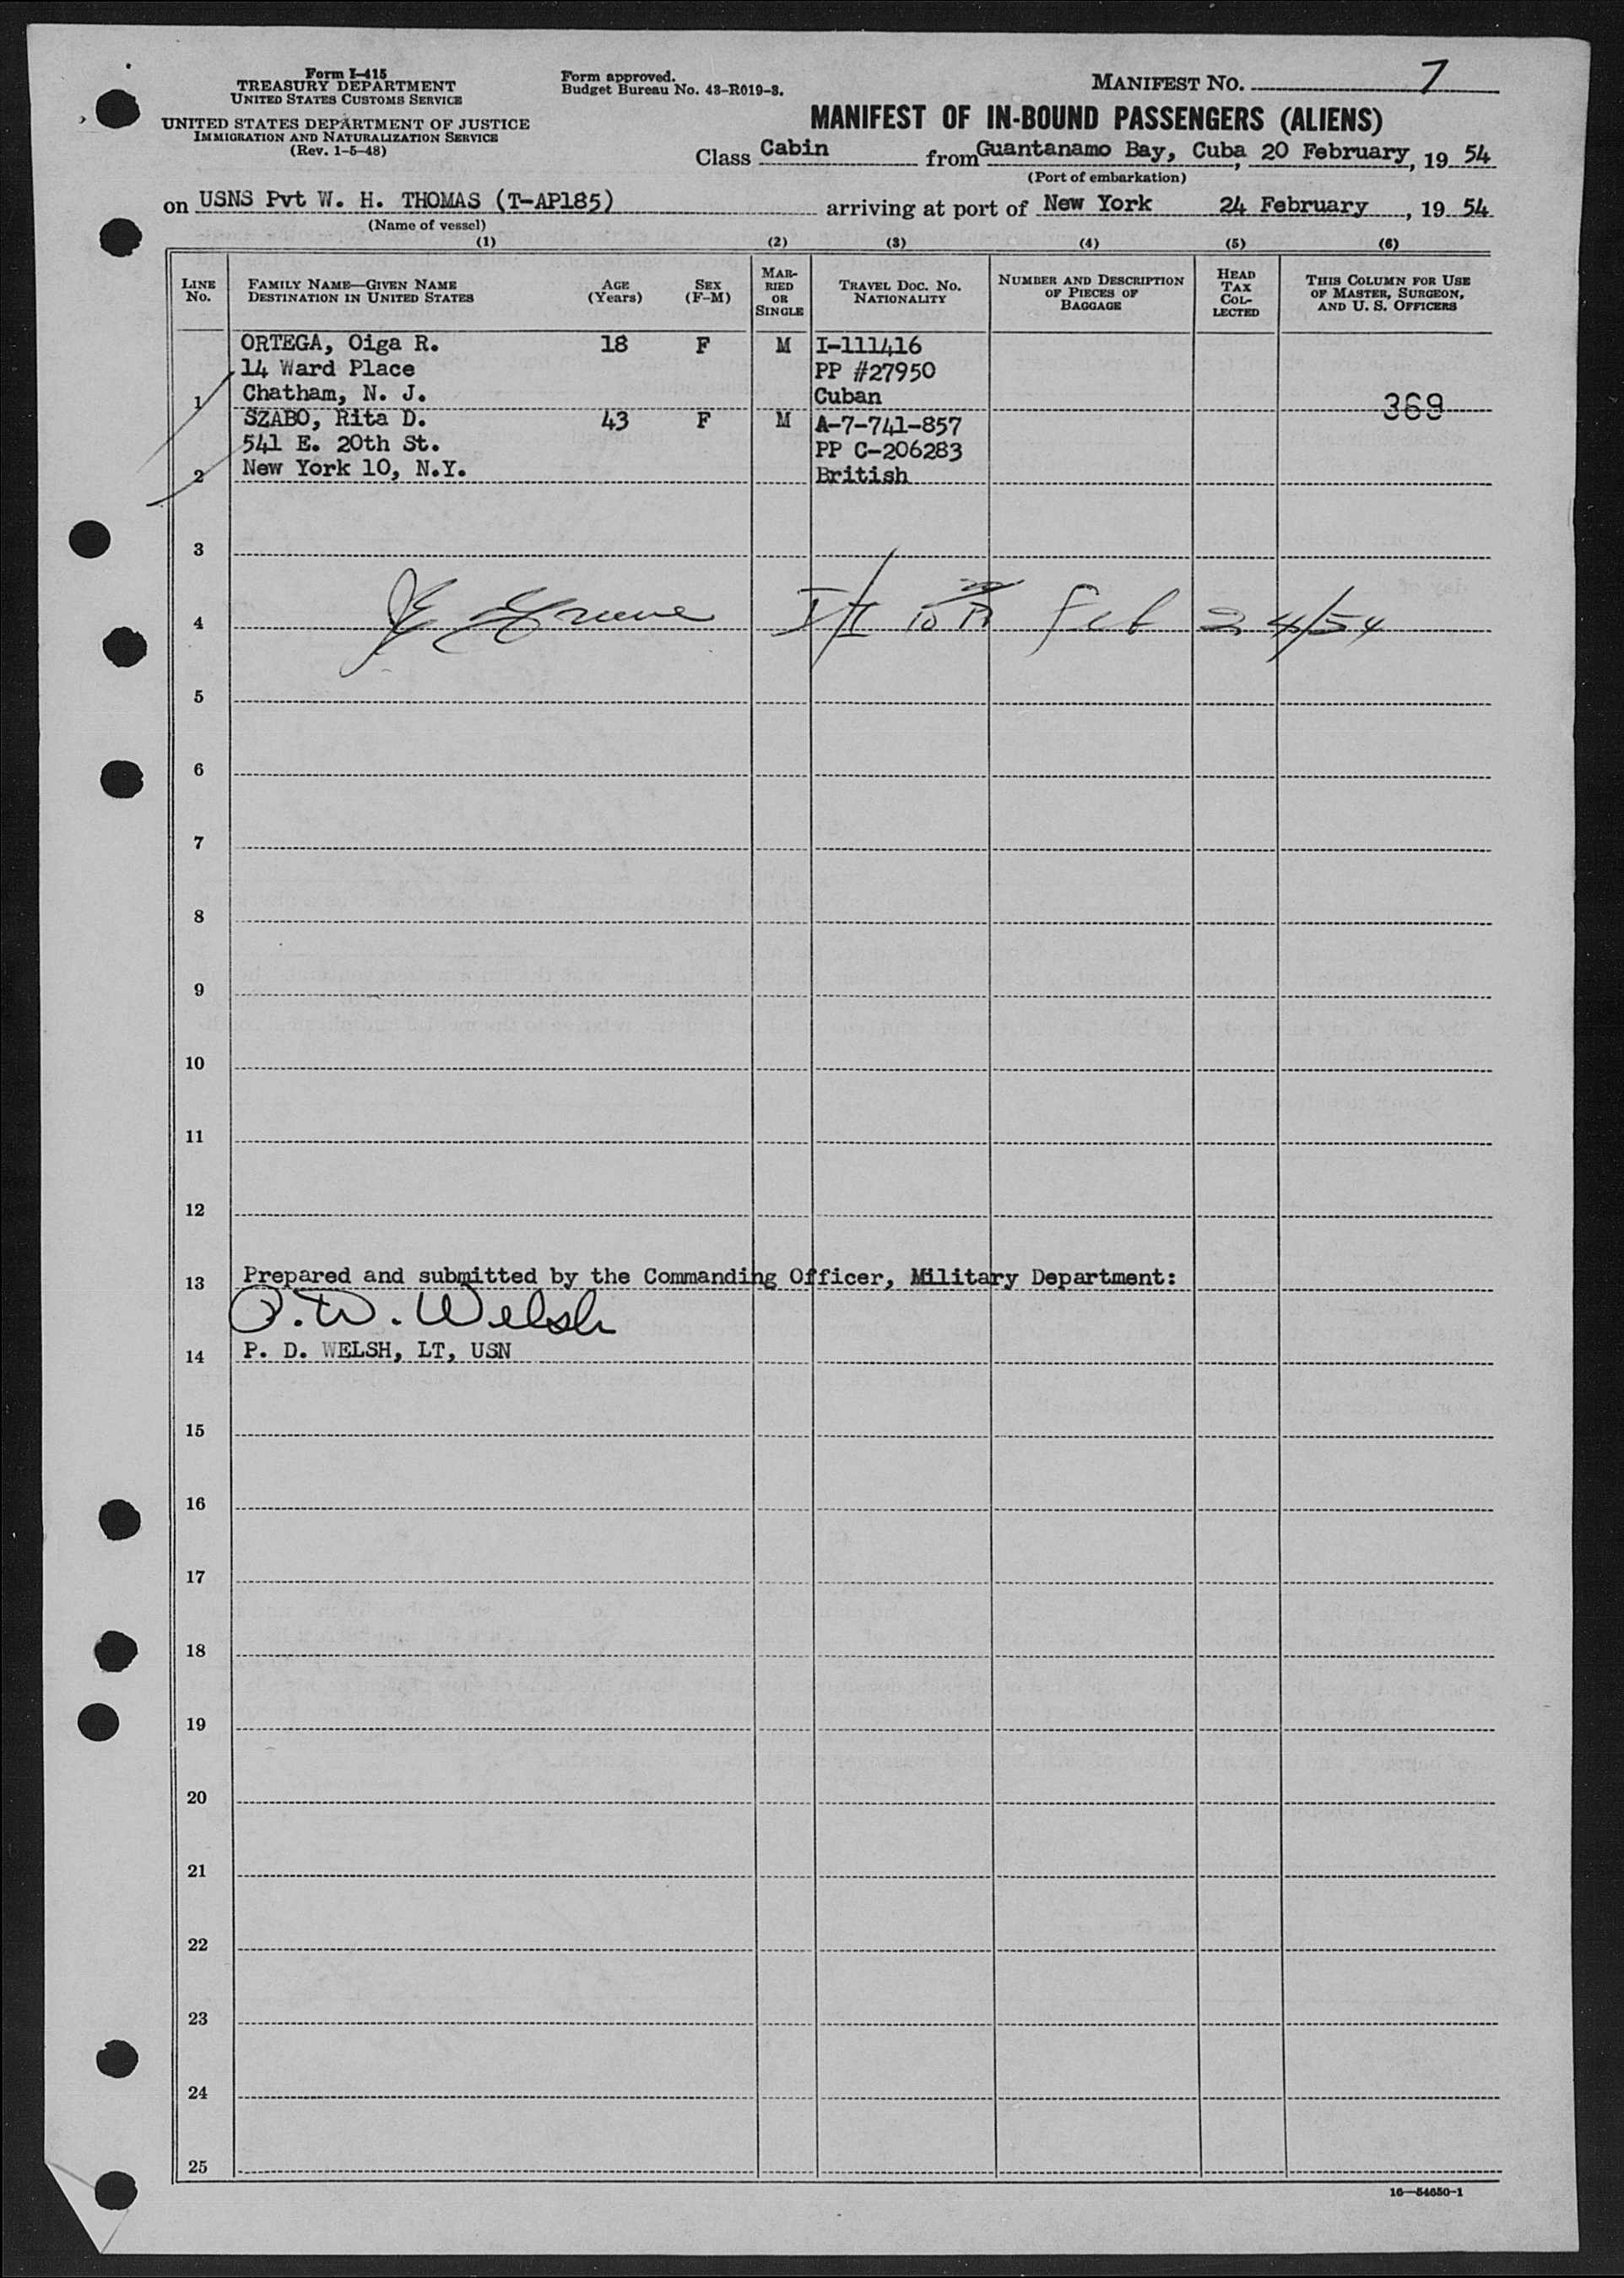 Form I-415
TREASURY DEPARTMENT
UNITED STATES CUSTOMS SERVICE
UNITED STATES DEPARTMENT OF JUSTICE
IMMIGRATION AND NATURALIZATION SERVICE
(Rev. 1-5-48)
Form approved.
Budget Bureau No. 43-R019-3.
MANIFEST NO. 7
MANIFEST OF IN-BOUND PASSENGERS (ALIENS)
Class Cabin from Guantanamo Bay, Cuba, 20 February, 19 54
(Port of embarkation)
on USNS Pvt W. H. THOMAS (T-AP185) arriving at port of New York 24 February, 19 54
(Name of vessel)
(1) (2) (3) (4) (5) (6)
LINE No.
FAMILY NAME—GIVEN NAME
DESTINATION IN UNITED STATES
AGE (Years)
SEX (F-M)
MARRIED OR SINGLE
TRAVEL DOC. NO. NATIONALITY
NUMBER AND DESCRIPTION OF PIECES OF BAGGAGE
HEAD TAX COLLECTED
THIS COLUMN FOR USE OF MASTER, SURGEON, AND U. S. OFFICERS
ORTEGA, Oiga R. 18 F M I-111416
14 Ward Place PP #27950
1 Chatham, N. J. Cuban 369
SZABO, Rita D. 43 F M A-7-741-857
541 E. 20th St. PP C-206283
2 New York 10, N.Y. British
3
4 Feb 24/54
5
6
7
8
9
10
11
12
13 Prepared and submitted by the Commanding Officer, Military Department:
P. D. Welsh
14 P. D. WELSH, LT, USN
15
16
17
18
19
20
21
22
23
24
25
16—54650-1